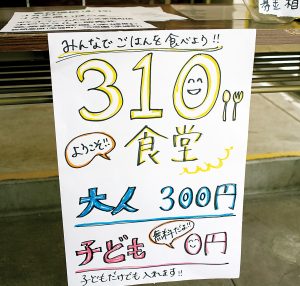 みんなでごはんを食べよう!!
310
ようこそ!!
食堂
大人 300円
無料だよ!!
子ども 0円
子どもだけでも入れます!!